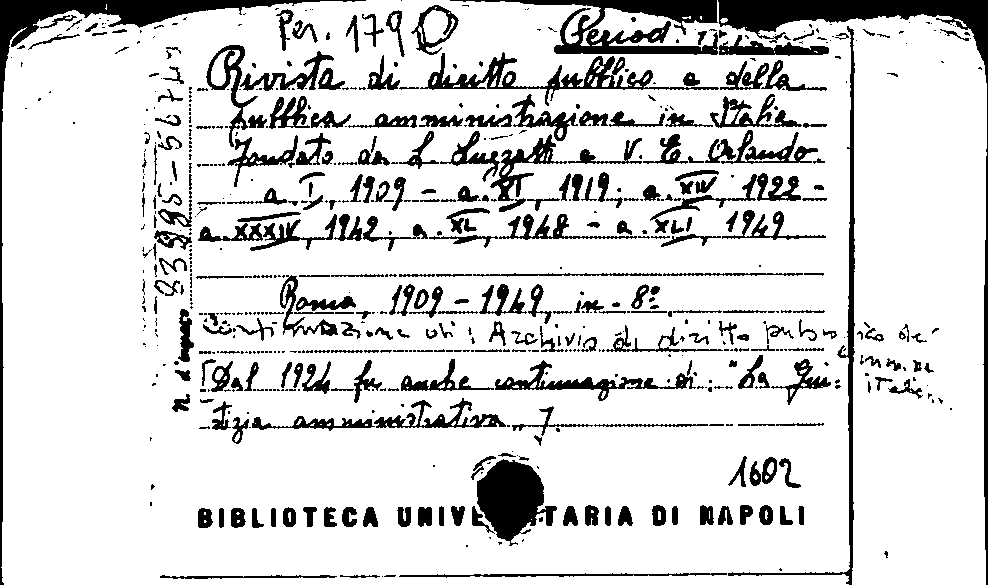 Per. 179 O
Period. It.
Rivista di diritto pubblico e della
pubblica amministrazione in Italia.
Fondato da L. Luzzatti e V. E. Orlando.
a. I, 1909 - a. XI, 1919; a. XIV, 1922 -
a. XXXIV, 1942; a. XL, 1948 - a. XLI, 1949
Roma, 1909 - 1949, in - 8º.
Continuazione di: Archivio di diritto pubblico
[Dal 1924 fu anche continuazione di: "La Giu-
stizia amministrativa"].
N. d'ingresso
1602
BIBLIOTECA UNIVE TARIA DI NAPOLI